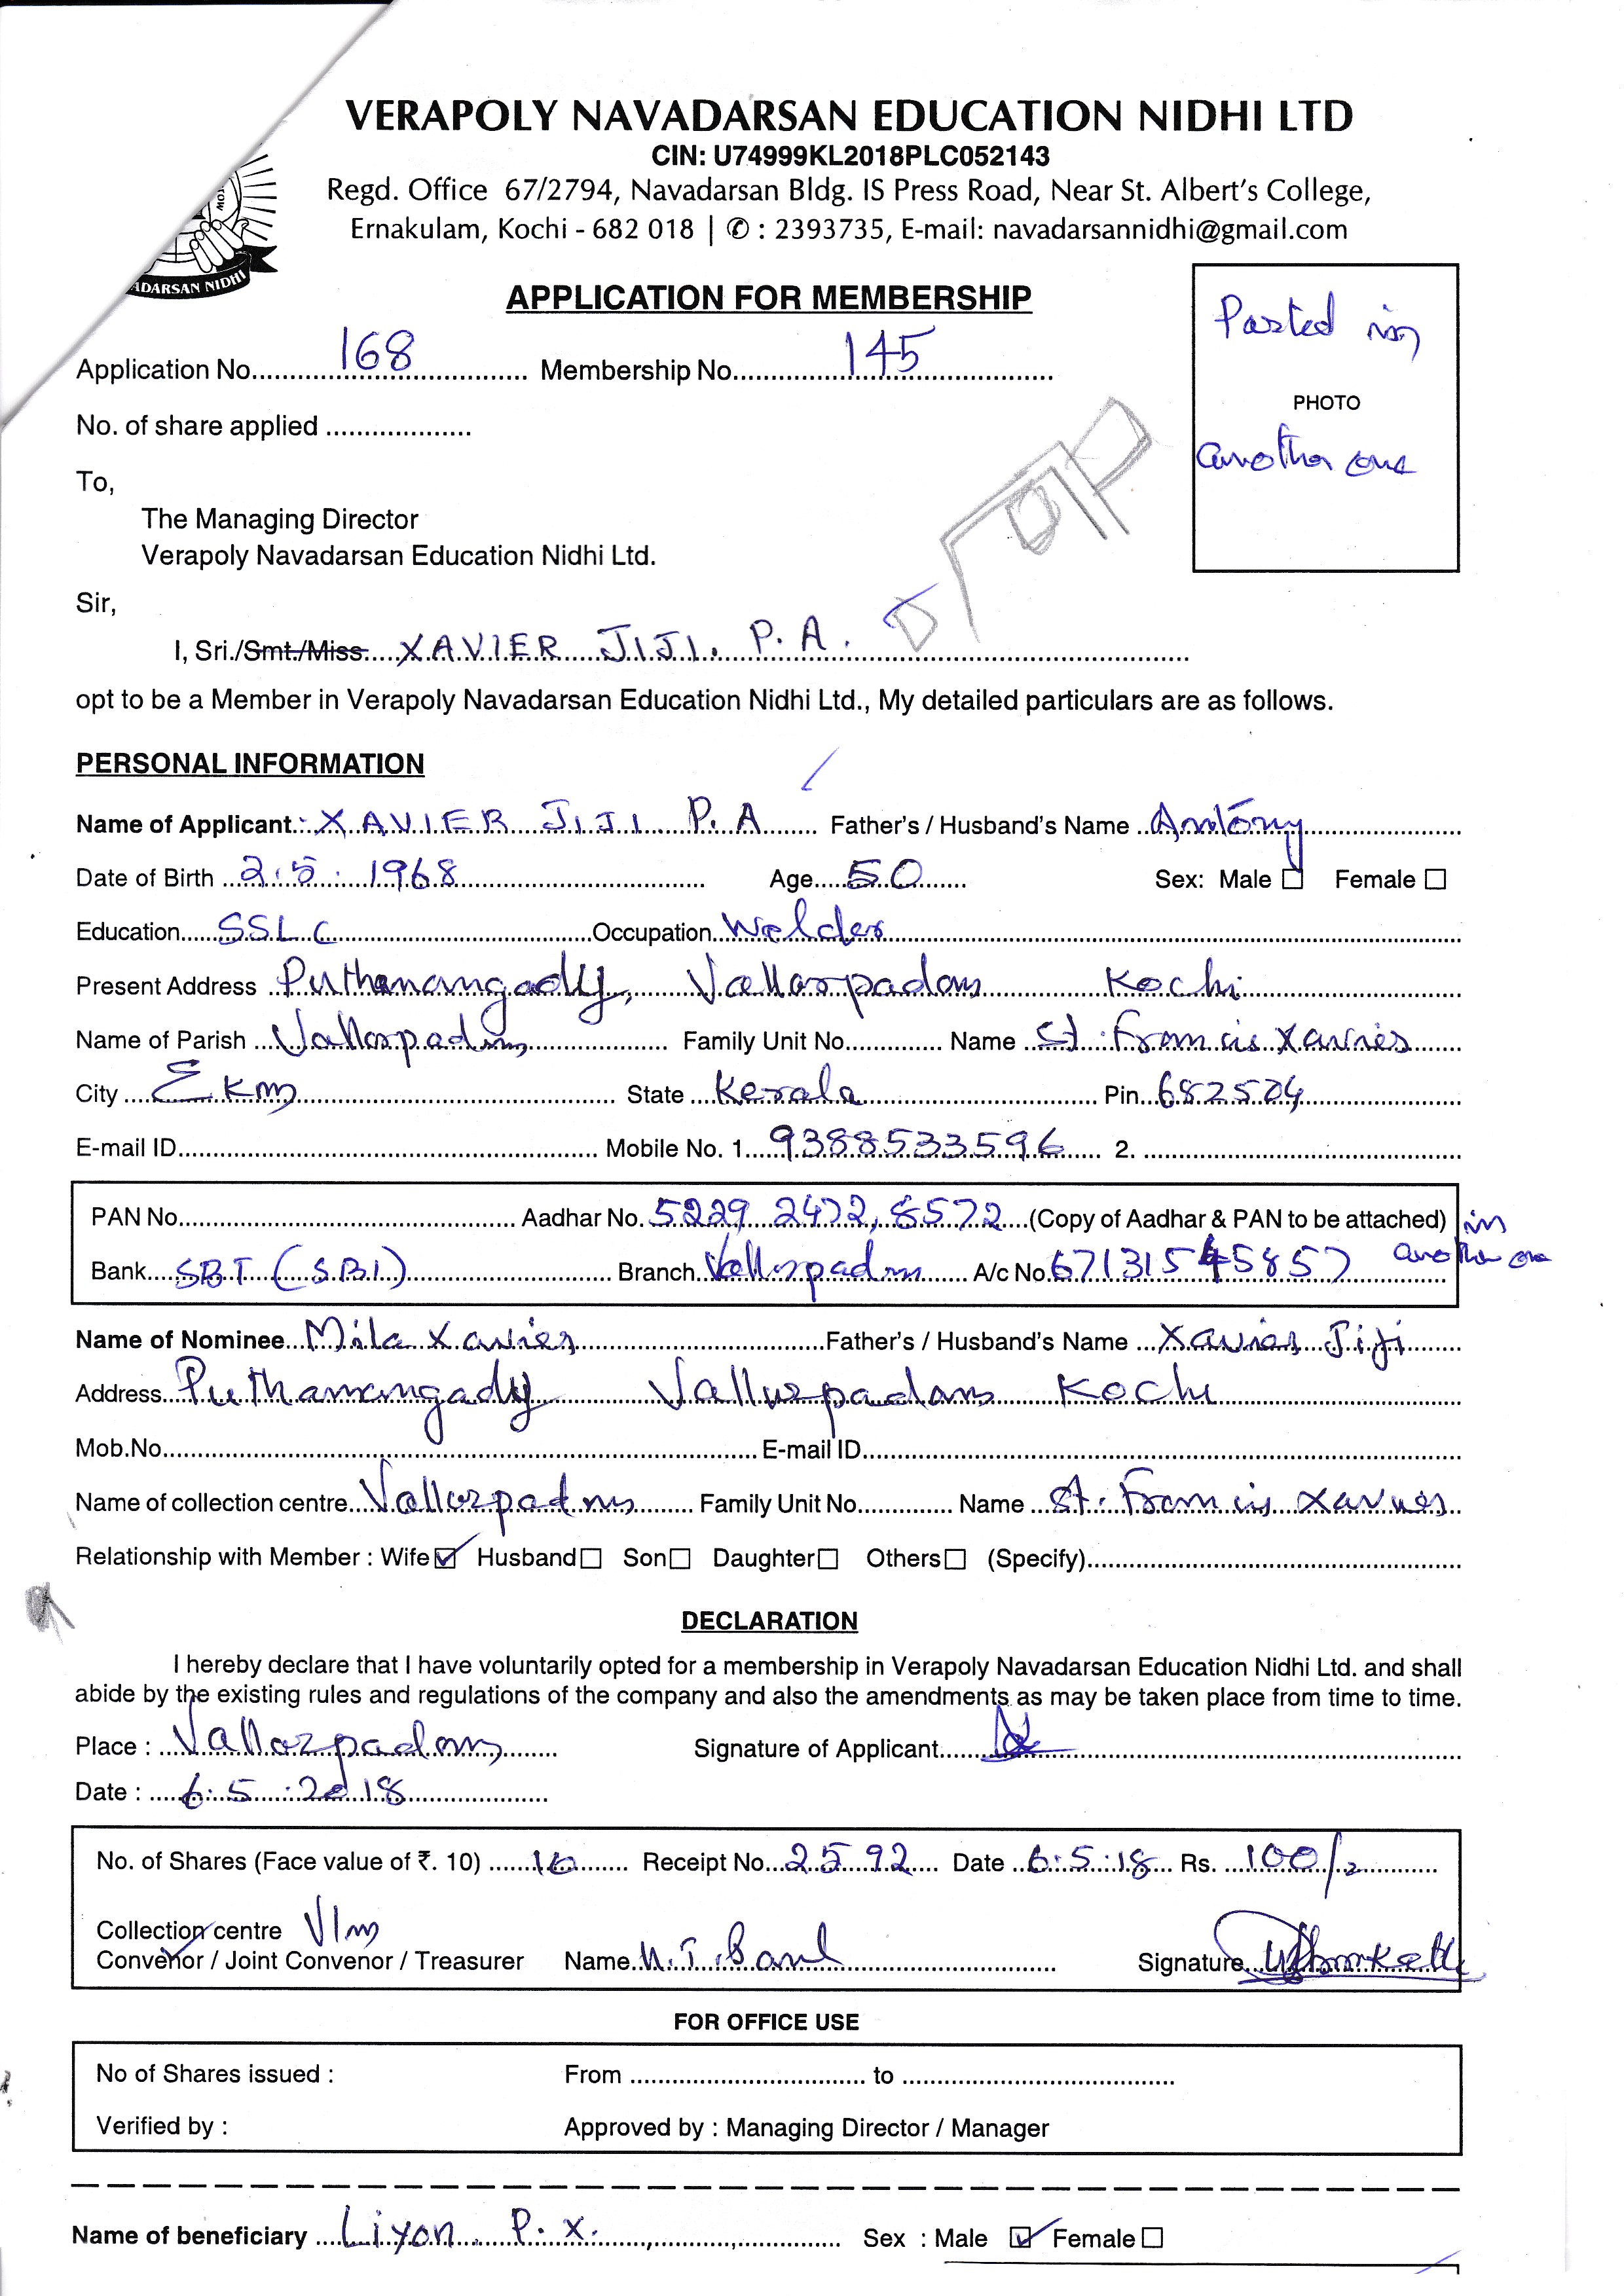 VERAPOLY NAVADARSAN EDUCATION NIDHI LTD
CIN: U74999KL2018PLC052143
Regd. Office 67/2794, Navadarsan Bldg. IS Press Road, Near St. Albert's College,
Ernakulam, Kochi - 682 018 | ✆ : 2393735, E-mail: navadarsannidhi@gmail.com
ADARSAN NIDHI
APPLICATION FOR MEMBERSHIP
Pasted in
PHOTO
another one
Application No. 168 Membership No. 145
No. of share applied ...................
To,
The Managing Director
Verapoly Navadarsan Education Nidhi Ltd.
Sir,
I, Sri./Smt./Miss XAVIER JIJI. P.A.
opt to be a Member in Verapoly Navadarsan Education Nidhi Ltd., My detailed particulars are as follows.
PERSONAL INFORMATION
Name of Applicant:- XAVIER JIJI P.A Father's / Husband's Name Antony
Date of Birth 2.5.1968 Age 50 Sex: Male ☐ Female ☐
Education SSLC Occupation Welder
Present Address Puthanangady, Vallarpadam Kochi
Name of Parish Vallarpadam Family Unit No. Name St. Francis Xavier
City Ekm State Kerala Pin 682504
E-mail ID Mobile No. 1. 9388533596 2.
PAN No. Aadhar No. 5229 2472, 8572 (Copy of Aadhar & PAN to be attached) in
Bank SBT (SBI) Branch Vallarpadam A/c No. 67131545857 another one
Name of Nominee Mila Xavier Father's / Husband's Name Xavier Jiji
Address Puthanangady Vallarpadam Kochi
Mob.No. E-mail ID
Name of collection centre Vallarpadam Family Unit No. Name St. Francis Xavier
Relationship with Member : Wife ☑ Husband ☐ Son ☐ Daughter ☐ Others ☐ (Specify)
DECLARATION
I hereby declare that I have voluntarily opted for a membership in Verapoly Navadarsan Education Nidhi Ltd. and shall
abide by the existing rules and regulations of the company and also the amendments as may be taken place from time to time.
Place : Vallarpadam Signature of Applicant
Date : 6.5.2018
No. of Shares (Face value of ₹. 10) 10 Receipt No. 2592 Date 6.5.18 Rs. 100/-
Collection centre Vlm
Convenor / Joint Convenor / Treasurer Name Signature
FOR OFFICE USE
No of Shares issued : From to
Verified by : Approved by : Managing Director / Manager
Name of beneficiary Liyon P.X. Sex : Male ☑ Female ☐